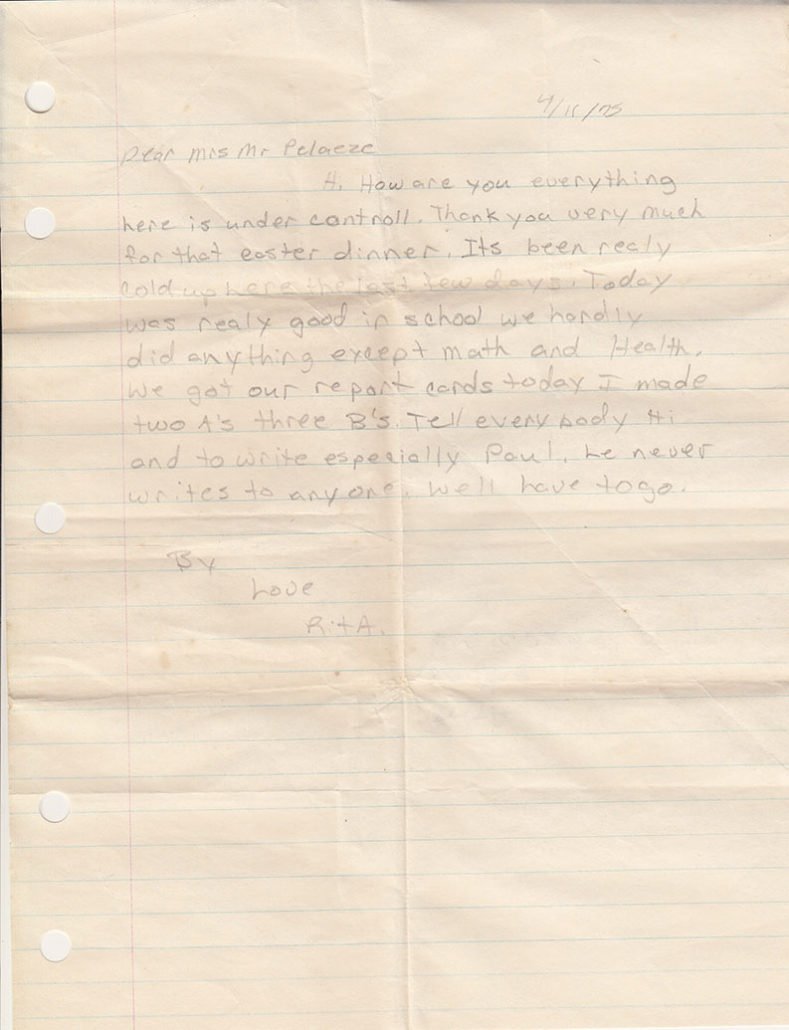 4/11/75
Dear Mrs Mr Pelaeze
Hi How are you everything
here is under controll. Thank you very much
for that easter dinner. Its been realy
cold up here the last few days. Today
was realy good in school we hardly
did anything except math and Health.
We got our report cards today I made
two A's three B's. Tell everybody Hi
and to write especially Paul, he never
writes to anyone. Well have to go.
By
Love
RitA.